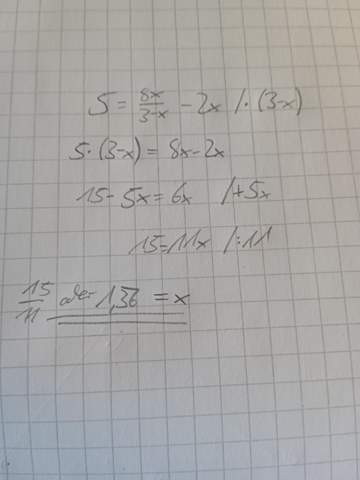 5 = 8x/3-x - 2x |·(3-x)
5·(3-x) = 8x-2x
15-5x=6x |+5x
15=11x |:11
15/11 oder 1,36 = x